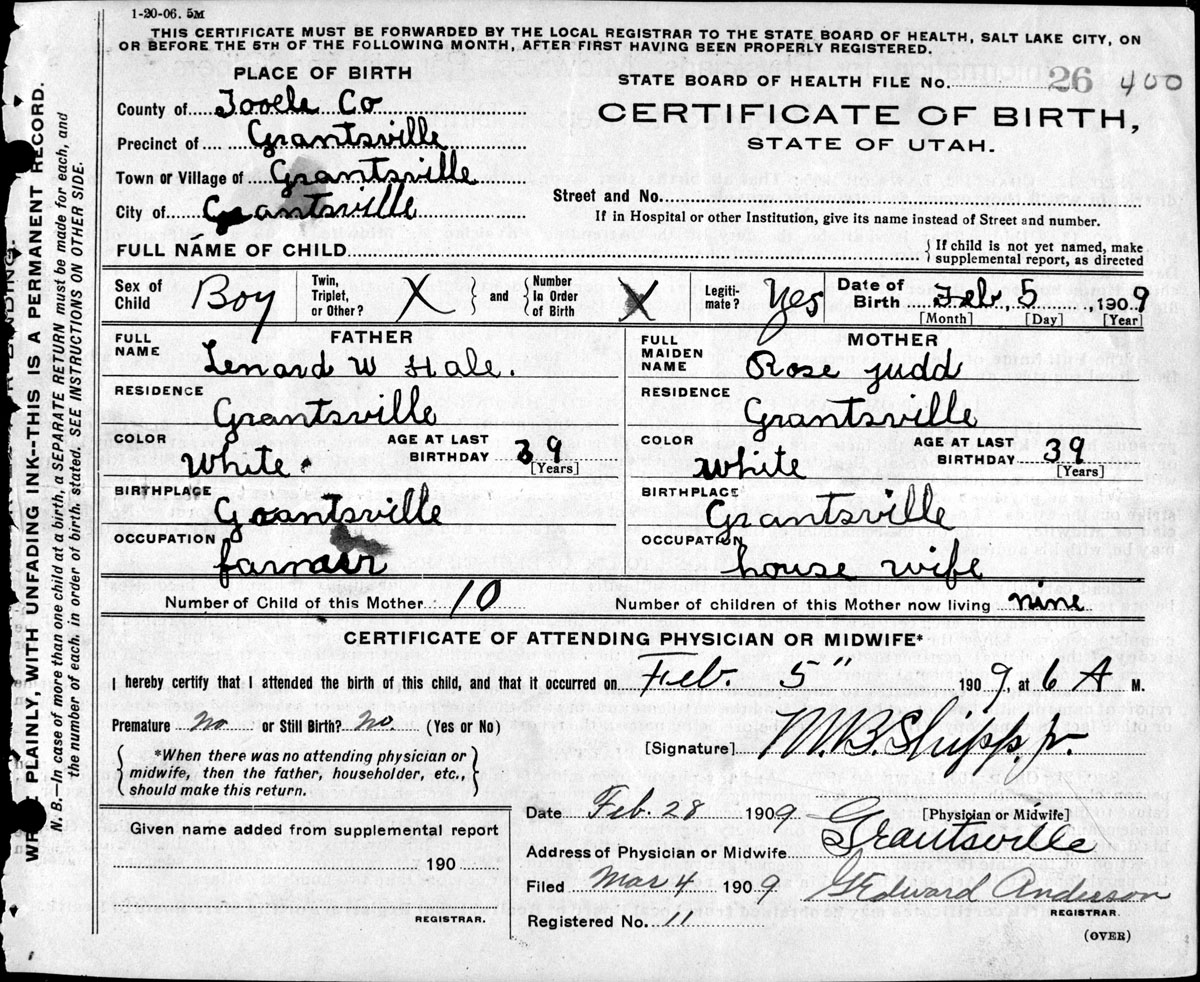 1-20-06. 5M
THIS CERTIFICATE MUST BE FORWARDED BY THE LOCAL REGISTRAR TO THE STATE BOARD OF HEALTH, SALT LAKE CITY, ON
OR BEFORE THE 5TH OF THE FOLLOWING MONTH, AFTER FIRST HAVING BEEN PROPERLY REGISTERED.
PLACE OF BIRTH
STATE BOARD OF HEALTH FILE No. 26 400
County of Tooele Co
CERTIFICATE OF BIRTH,
Precinct of Grantsville
STATE OF UTAH.
Town or Village of Grantsville
City of Grantsville
Street and No.
If in Hospital or other Institution, give its name instead of Street and number.
FULL NAME OF CHILD
If child is not yet named, make
supplemental report, as directed
Sex of Child Boy
Twin, Triplet, or Other? X
and Number In Order of Birth X
Legiti-mate? Yes
Date of Birth Feb, 5, 1909
[Month] [Day] [Year]
FATHER
FULL NAME Lenard W Hale.
RESIDENCE Grantsville
COLOR White AGE AT LAST BIRTHDAY 39 [Years]
BIRTHPLACE Grantsville
OCCUPATION farmer
MOTHER
FULL MAIDEN NAME Rose Judd
RESIDENCE Grantsville
COLOR White AGE AT LAST BIRTHDAY 39 [Years]
BIRTHPLACE Grantsville
OCCUPATION house wife
Number of Child of this Mother 10 Number of children of this Mother now living nine
CERTIFICATE OF ATTENDING PHYSICIAN OR MIDWIFE*
I hereby certify that I attended the birth of this child, and that it occurred on Feb. 5" 1909, at 6 A M.
Premature no or Still Birth? no. (Yes or No)
[Signature] M.B. Shipp, jr.
[Physician or Midwife]
*When there was no attending physician or
midwife, then the father, householder, etc.,
should make this return.
Date Feb. 28 1909
Address of Physician or Midwife Grantsville
Filed Mar 4 1909 Edward Anderson
REGISTRAR.
Registered No. 11
(OVER)
Given name added from supplemental report
190
REGISTRAR.
WRITE PLAINLY, WITH UNFADING INK--THIS IS A PERMANENT RECORD.
N. B.—In case of more than one child at a birth, a SEPARATE RETURN must be made for each, and
the number of each, in order of birth, stated. SEE INSTRUCTIONS ON OTHER SIDE.